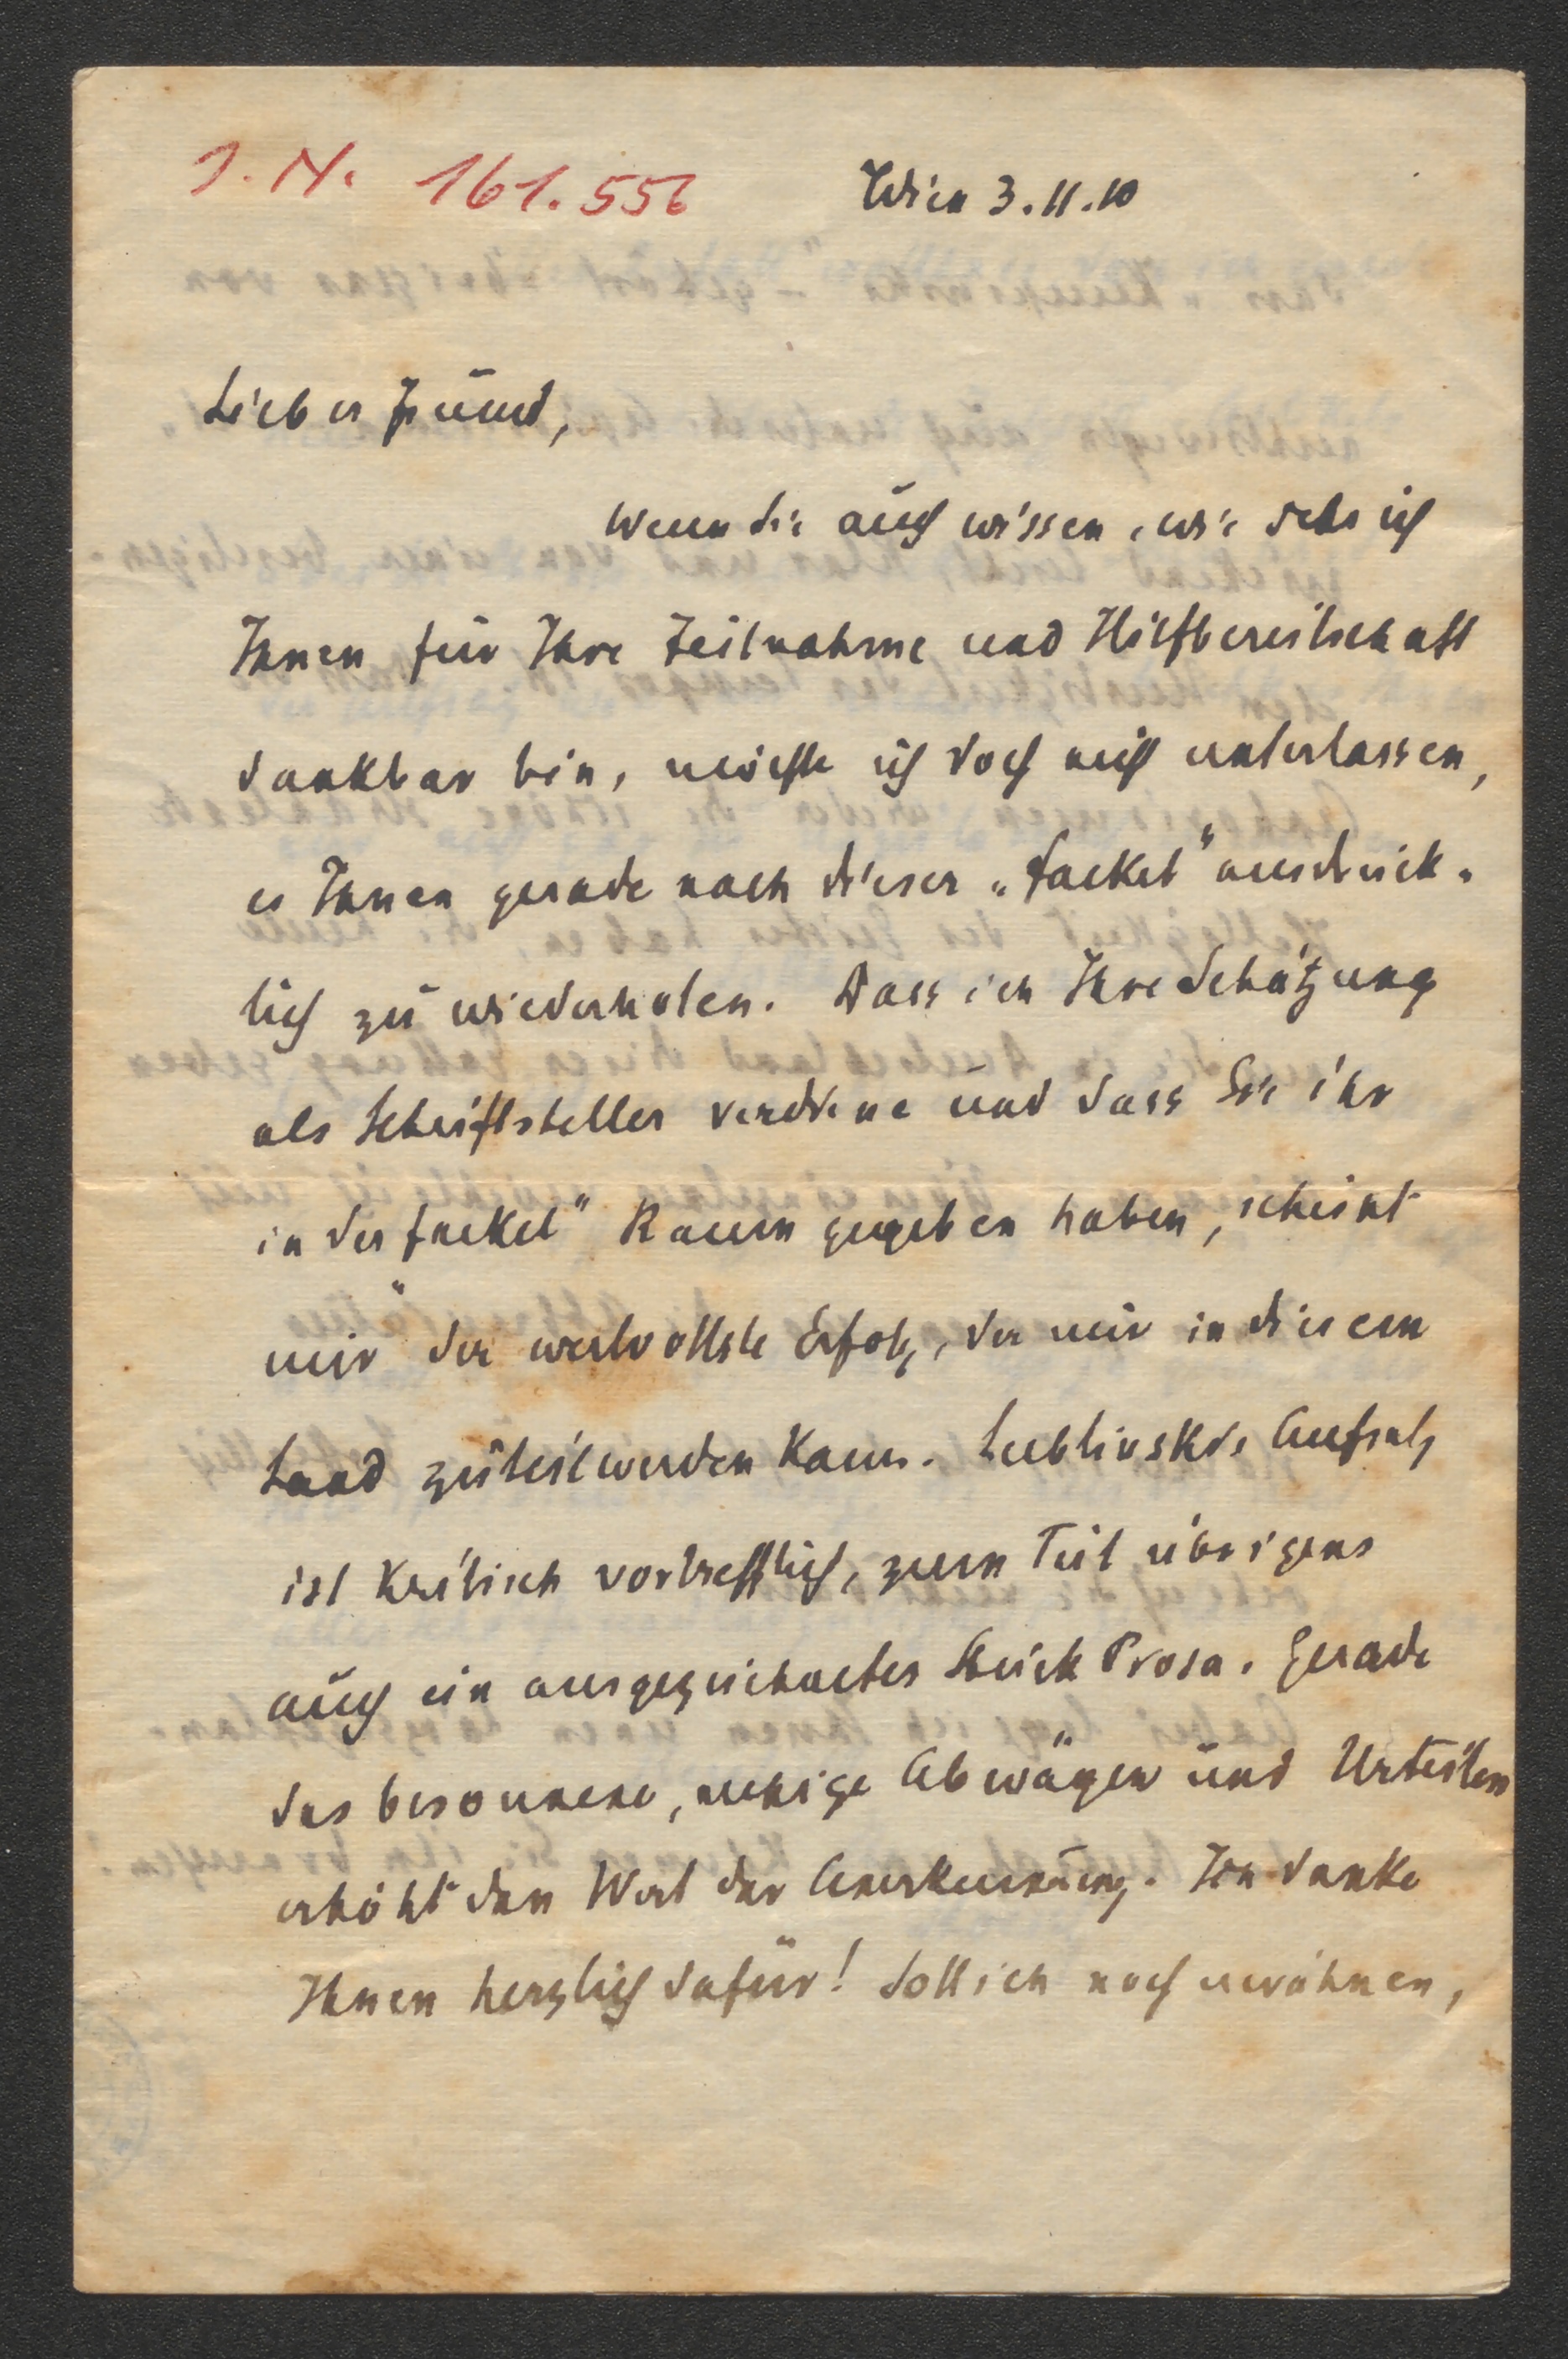 I. N. 161.556
Wien 3.11.10
Lieber Freund,
wenn Sie auch wissen, wie sehr ich
Ihnen für Ihre Teilnahme und Hilfbereitschaft
dankbar bin, möchte ich doch nicht unterlassen,
es Ihnen gerade nach dieser „Fackel" ausdrück-
lich zu wiederholen. Dass ich Ihre Schätzung
als Schriftsteller verdiene und dass Sie ihr
in der Fackel" Raum gegeben haben, scheint
mir der wertvollste Erfolg, der mir in diesem
Land zuteil werden kann. Lublinskis Aufsatz
ist kritisch vortrefflich, zum Teil übrigens
auch ein ausgezeichnetes Stück Prosa. Gerade
das besonnene, ruhige Abwägen und Urteilen
erhöht den Wert der Anerkennung. Ich danke
Ihnen herzlich dafür! Soll ich noch erwähnen,